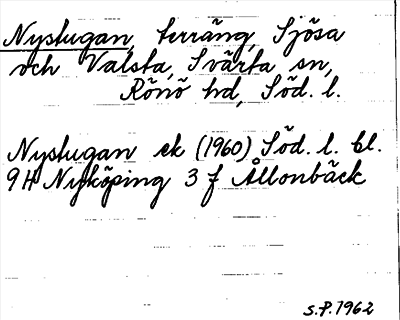 Nystugan, terräng, Sjösa
och Valsta, Svärta sn,
Rönö hd, Söd. l.
Nystugan ek (1960) Söd. l. bl.
9H Nyköping 3 f Ållonbäck
S.P. 1962